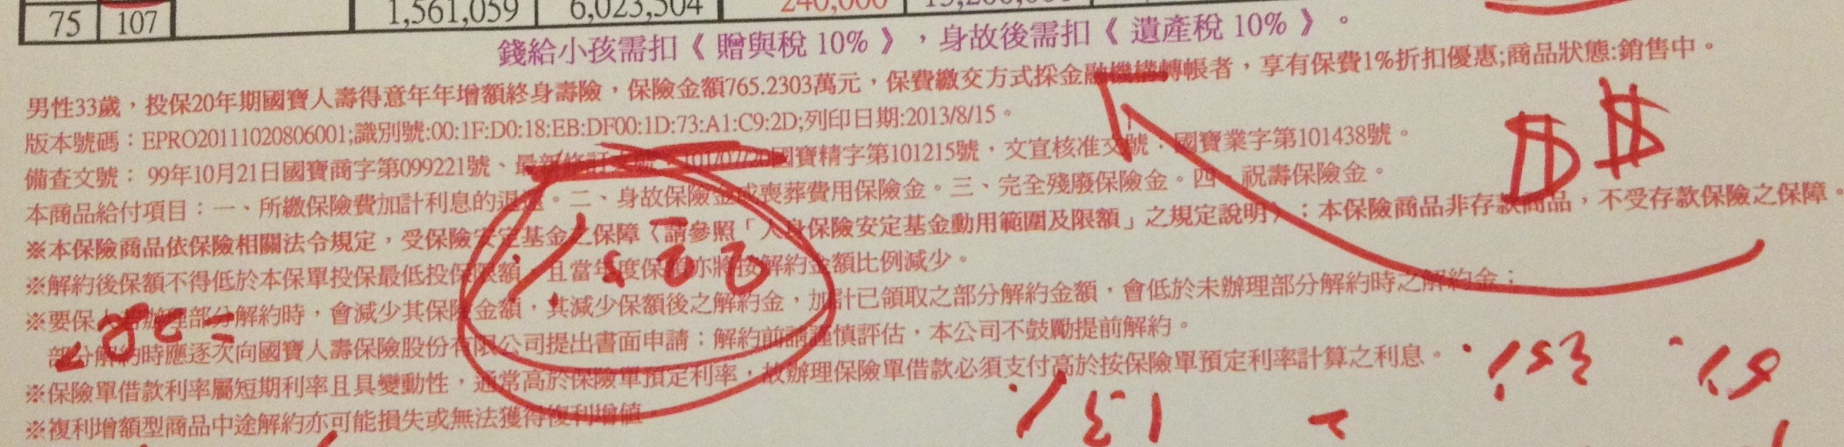 75 107 1,561,059 6,023,504 240,000
錢給小孩需扣《 贈與稅 10% 》，身故後需扣《 遺產稅 10% 》。
男性33歲，投保20年期國寶人壽得意年年增額終身壽險，保險金額765.2303萬元，保費繳交方式採金融機構轉帳者，享有保費1%折扣優惠;商品狀態:銷售中。
版本號碼：EPRO20111020806001;識別號:00:1F:D0:18:EB:DF00:1D:73:A1:C9:2D;列印日期:2013/8/15。
備查文號： 99年10月21日國寶商字第099221號、最新修訂文號：101/07/20國寶精字第101215號，文宣核准文號：國寶業字第101438號。
本商品給付項目：一、所繳保險費加計利息的退還。二、身故保險金或喪葬費用保險金。三、完全殘廢保險金。四、祝壽保險金。
※本保險商品依保險相關法令規定，受保險安定基金之保障（請參照「人身保險安定基金動用範圍及限額」之規定說明）；本保險商品非存款商品，不受存款保險之保障。
※解約後保額不得低於本保單投保最低投保限額，且當年度保額亦將按解約金額比例減少。
※要保人若辦理部分解約時，會減少其保險金額，其減少保額後之解約金，加計已領取之部分解約金額，會低於未辦理部分解約時之解約金；
部分解約時應逐次向國寶人壽保險股份有限公司提出書面申請；解約前請謹慎評估，本公司不鼓勵提前解約。
※保險單借款利率屬短期利率且具變動性，通常高於保險單預定利率，故辦理保險單借款必須支付高於按保險單預定利率計算之利息。
※複利增額型商品中途解約亦可能損失或無法獲得複利增值